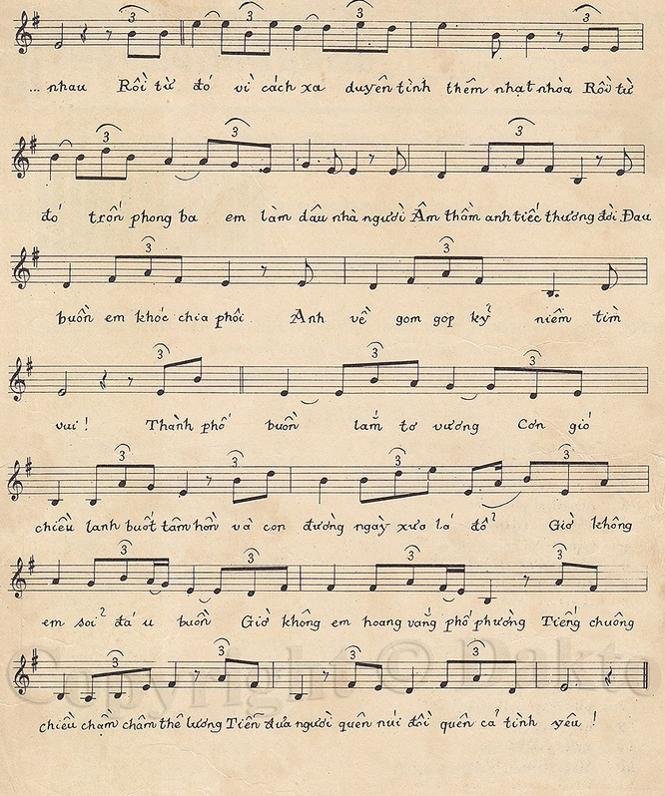 ... nhau Rồi từ đó vì cách xa duyên tình thêm nhạt nhòa Rồi từ
đó trốn phong ba em làm dâu nhà người Âm thầm anh tiếc thương đời Đau
buồn em khóc chia phôi. Anh về gom góp kỷ niềm tìm
vui! Thành phố buồn lắm tơ vương Cơn gió
chiều lạnh buốt tâm hồn và con đường ngày xưa lá đổ Giờ không
em sỏi đá u buồn Giờ không em hoang vắng phố phường Tiếng chuông
chiều chầm chậm thê lương Tiễn đưa người quên núi đồi quên cả tình yêu!
Copyright © Dakto